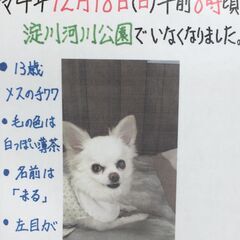 今年12月18日(日)午前8時頃
淀川河川公園でいなくなりました。
• 13歳
メスのチワワ
• 毛の色は
白っぽい薄茶
• 名前は
「まる」
• 左目が